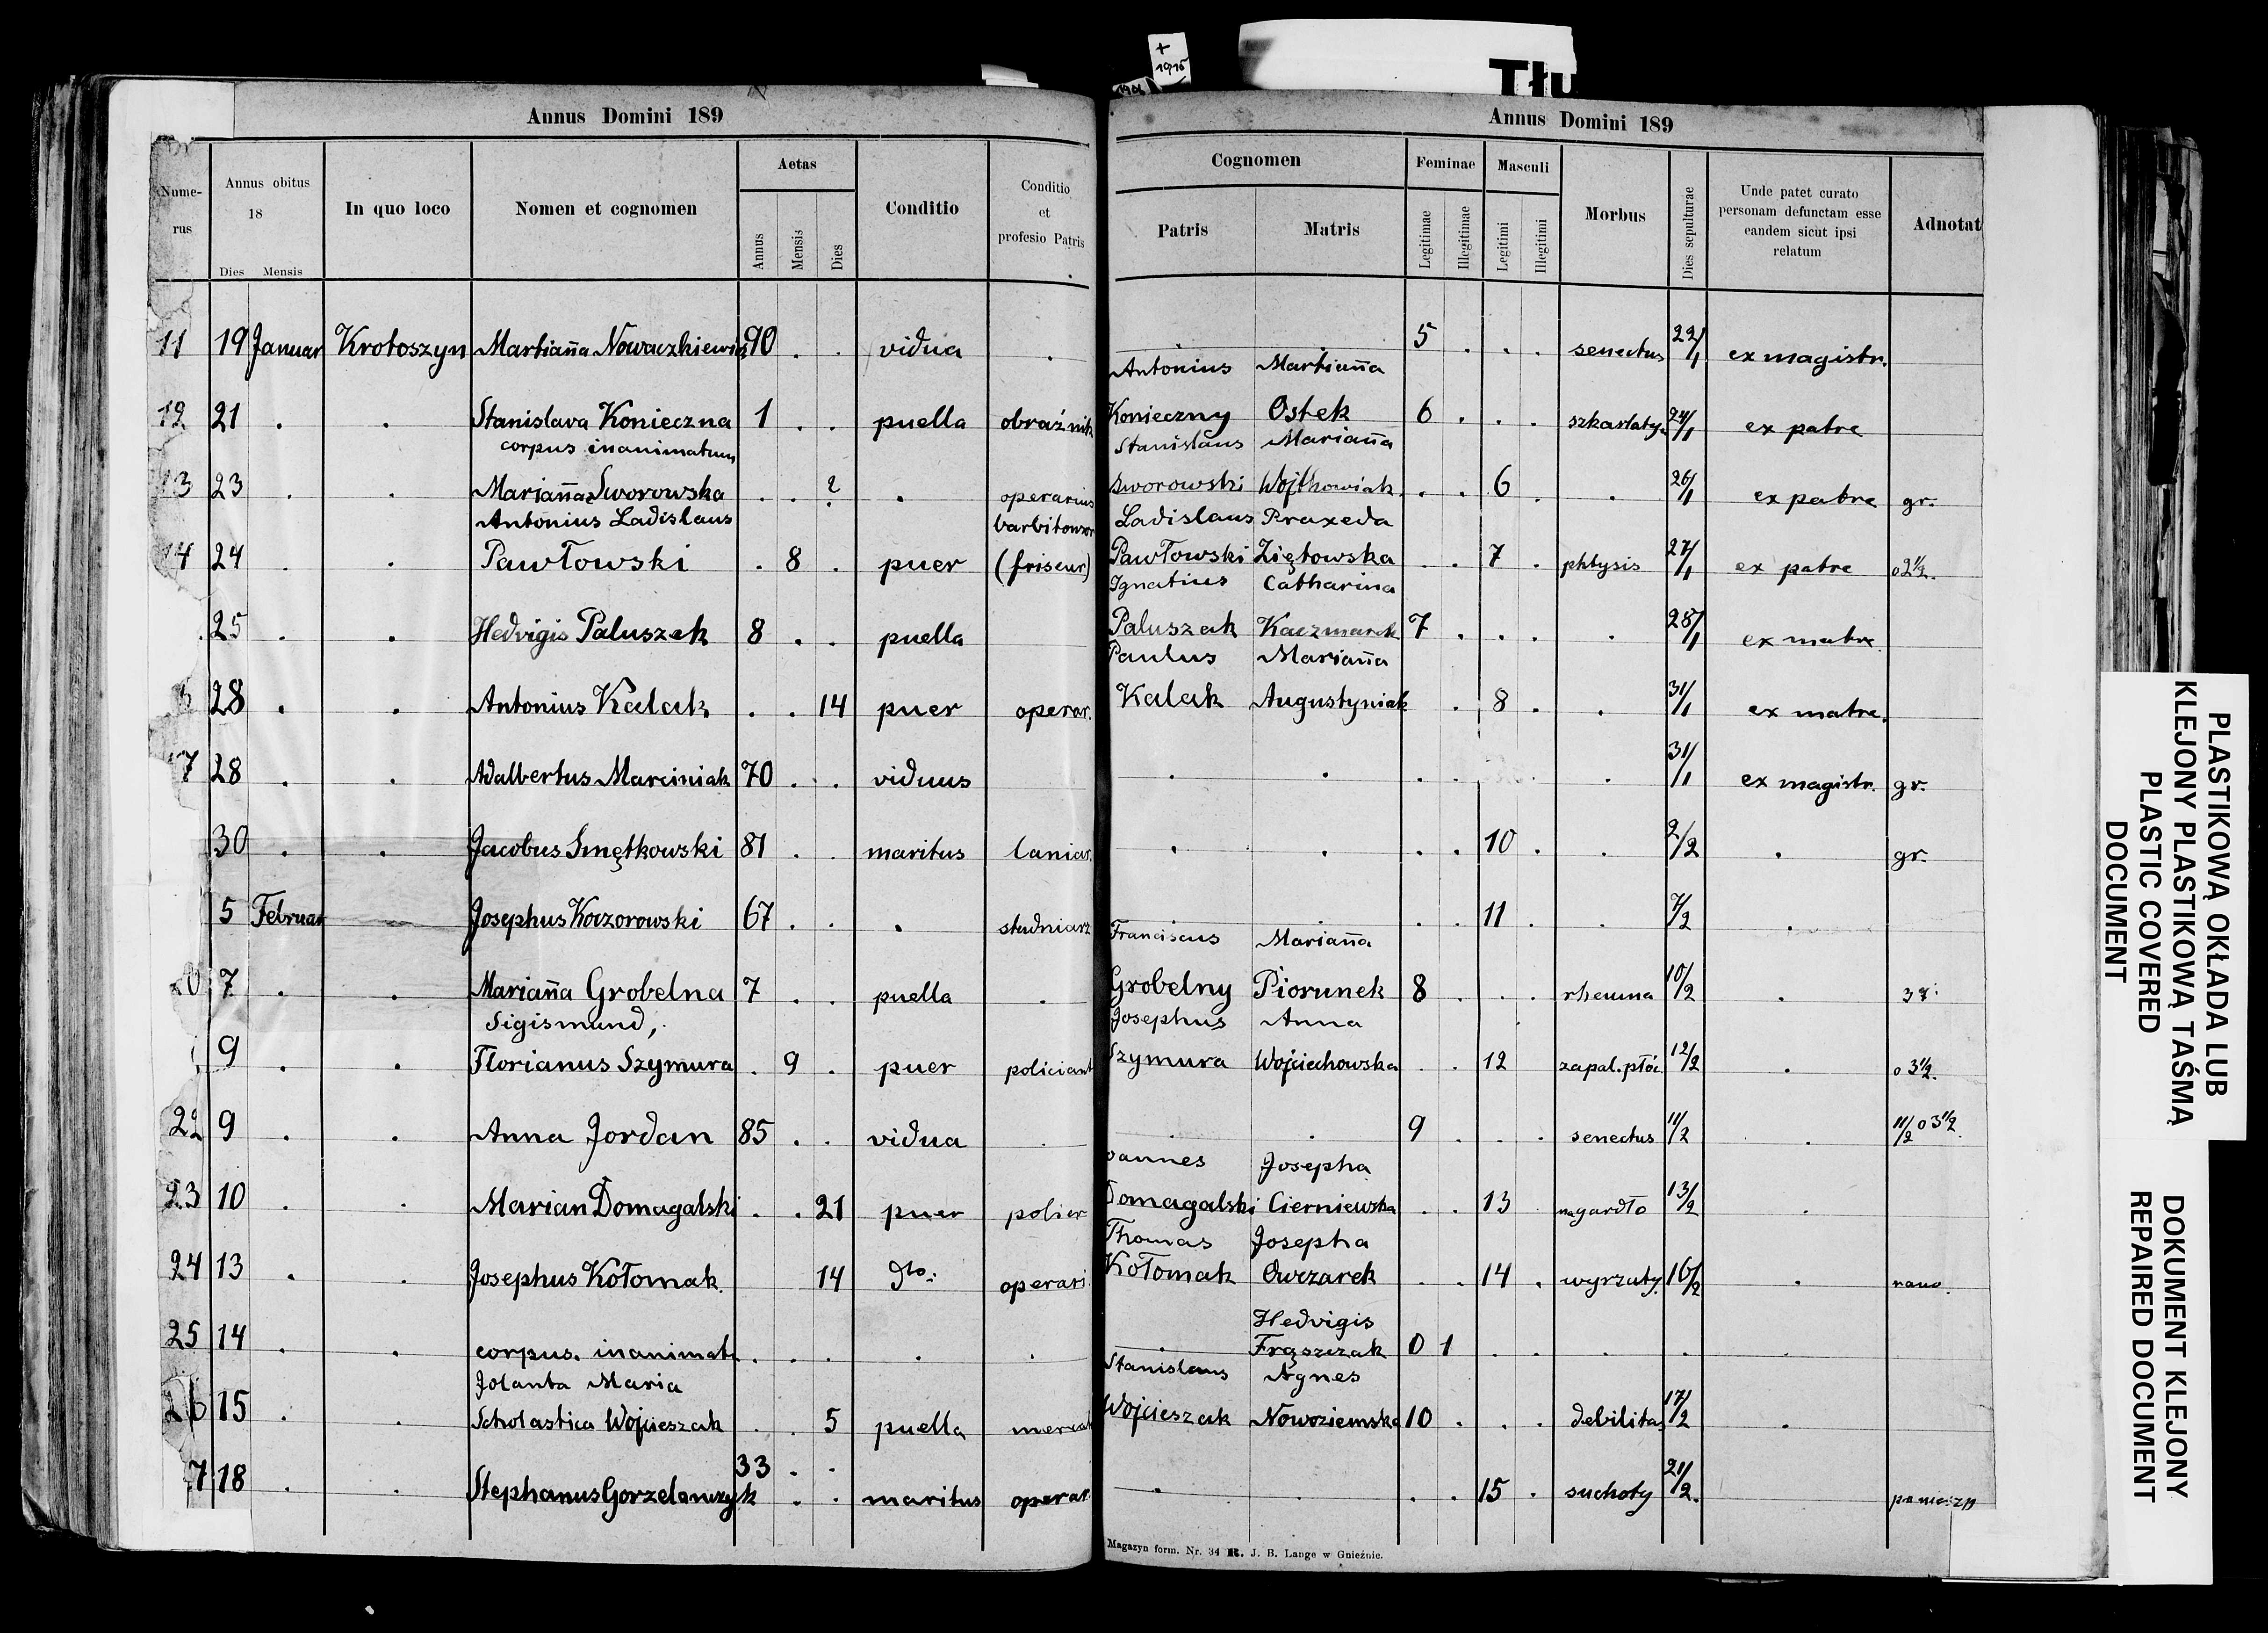 +
1915
1906
Tłu
Annus Domini 189
Annus Domini 189
Nume-
rus
Annus obitus
18
Dies Mensis
In quo loco
Nomen et cognomen
Aetas
Annus
Mensis
Dies
Conditio
Conditio
et
profesio Patris
Cognomen
Patris
Matris
Feminae
Legitimae
Illegitimae
Masculi
Legitimi
Illegitimi
Morbus
Dies sepulturae
Unde patet curato
personam defunctam esse
eandem sicut ipsi
relatum
Adnotat
11 19 Januar Krotoszyn Martiana Nowaczkiewicz 90 . . vidua . . . 5 . . . senectus 22/1 ex magistr.
Antonius Martiana
12 21 . . Stanislava Konieczna 1 . . puella obraźnik Konieczny Ostek 6 . . . szkarlaty. 24/1 ex patre
corpus inanimatum Stanislaus Mariana
13 23 . . Mariana Sworowska . . 2 . operarius Sworowski Wojtkowiak . . 6 . 26/1 ex patre gr.
Antonius Ladislaus barbitonsor Ladislaus Praxeda
14 24 . . Pawłowski . 8 . puer (friseur) Pawłowski Ziętowska . . 7 . phtysis 27/1 ex patre o 2 1/2.
Ignatius Catharina
25 . . Hedvigis Paluszak 8 . . puella Paluszak Kaczmarek 7 . . . . 28/1 ex matre
Paulus Mariana
28 . . Antonius Kalak . . 14 puer operar. Kalak Augustyniak . 8 . . 31/1 ex matre.
7 28 . . Adalbertus Marciniak 70 . . viduus . . . . . 31/1 ex magistr. gr.
30 . . Jacobus Smętkowski 81 . . maritus laniar. . . . . 10 . . 2/2 . gr.
5 Februar Josephus Koczorowski 67 . . . studniarz . . 11 . . 7/2 .
Franciscus Mariana
20 7 . . Mariana Grobelna 7 . . puella . Grobelny Piorunek 8 . . . rheuma 10/2 .
Sigismund, Josephus Anna
9 . . Florianus Szymura . 9 . puer policiant Szymura Wojciechowska . . 12 zapal. płóc 12/2 . o 3 1/2.
22 9 . . Anna Jordan 85 . . vidua . . . 9 . . . senectus 11/2 . 11/2 o 3 1/2.
oannes Josepha
23 10 . . Marian Domagalski . . 21 puer polier Domagalski Cierniewska . . 13 na gardło 13/2 .
Thomas Josepha
24 13 . . Josephus Kołomak. 14 dto: operari. Kołomak Owczarek . . 14 . wyrzuty. 16/2 . rano.
Hedvigis
25 14 . . corpus. inanimat. . . . . . . Frąszczak 0 1 . . . . .
Jolanta Maria Stanislaus Agnes
26 15 . . Scholastica Wojcieszak . . 5 puella mercat Wojcieszak Nowoziemska 10 . . . debilitas 17/2 .
7 18 . . Stephanus Gorzelanczyk 33 . . maritus operar. . . . . 15 . suchoty 21/2.
Magazyn form. Nr. 34 R. J. B. Lange w Gnieźnie.
PLASTIKOWĄ OKŁADA LUB
KLEJONY PLASTIKOWĄ TAŚMĄ
PLASTIC COVERED
DOCUMENT
DOKUMENT KLEJONY
REPAIRED DOCUMENT